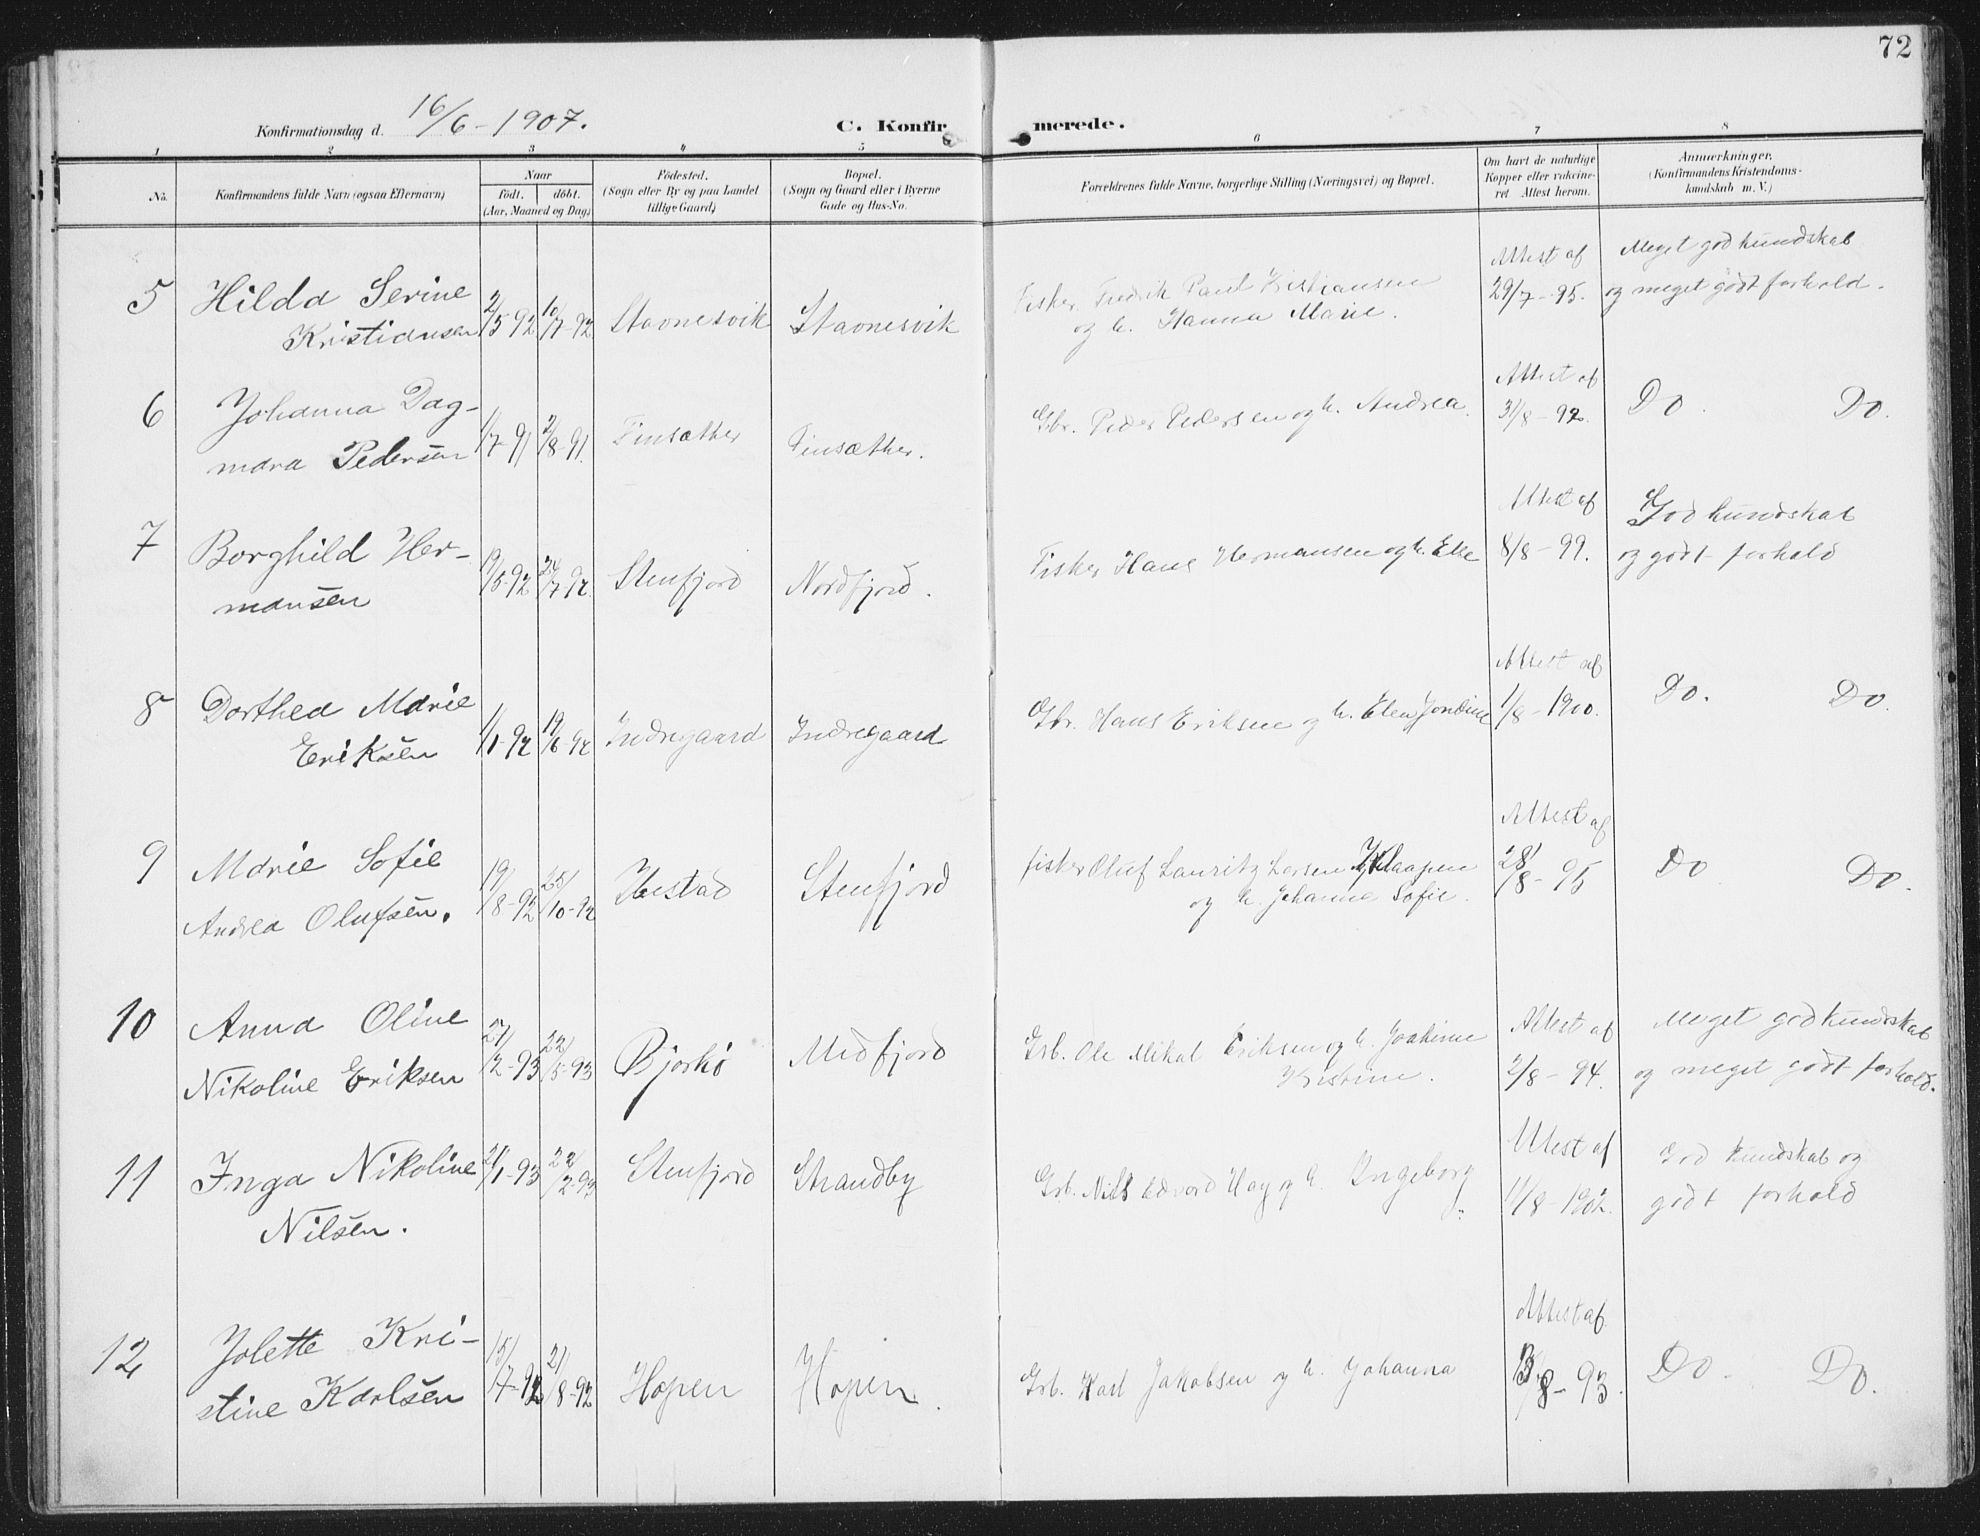 72
Konfirmationsdag d. 16/6-1907. C. Konfirmerede.
1 2 3 4 5 6 7 8
No. Konfirmandens fulde Navn (ogsaa Efternavn) Naar født. døbt. (Aar, Maaned og Dag) Fødested. (Sogn eller By og paa Landet tillige Gaard) Bopæl. (Sogn og Gaard eller i Byerne Gade og Hus-No. Forældrenes fulde Navne, borgerlige Stilling (Næringsvei) og Bopæl. Om havt de naturlige Kopper eller vakcineret Attest herom. Anmærkninger. (Konfirmandens Kristendomskundskab m. V.)
5 Hilda Serine Kristiansen 2/5-92 10/7-92 Stavnesvik Stavnesvik Fisker Fredrik Paul Kristiansen og h. Hanna Marie. Attest af 29/7-95. Meget god kundskab og meget godt forhold.
6 Johanna Dagmara Pedersen 1/7-91 2/8-91. Finsæther Finsæther. Gbr. Peder Pedersen og h. Andrea. Attest af 31/8-92. Do. Do.
7 Borghild Hermansen 19/5-92 24/7-92. Stenfjord Nordfjord. Fisker Hans Hermansen og h. Else Attest af 8/8-99. God kundskab og godt forhold
8 Dorthea Marie Eriksen 1/1-92 19/6-92 Indregaard Indregaard Gbr. Hans Eriksen og h. Elen Jondine Attest af 1/8-1900. Do. Do.
9 Marie Sofie Andrea Olufsen. 19/8-92 25/10-92 Hestad Stenfjord fisker Oluf Lauritz Larsen Klaapen og h. Johanna Sofie. Attest af 28/8-95 Do Do.
10 Anna Oline Nikoline Eriksen 27/2-93 22/5-93 Bjorkø Medfjord Grb. Ole Mikal Eriksen og h. Joakime Kristine. Attest af 2/8-94. Meget god kundskab og meget godt forhold.
11 Inga Nikoline Nilsen. 21/1-93 22/2-93 Stenfjord Strandby Grb. Nils Edvard Hay og h. Ingeborg Attest af 1/8-1902. God kundskab og godt forhold
12 Jolette Kristine Karlsen 15/7-92 21/8-92 Hopen Hopen. Grb. Karl Jakobsen og h. Johanna Attest af /8-93. Do. Do.